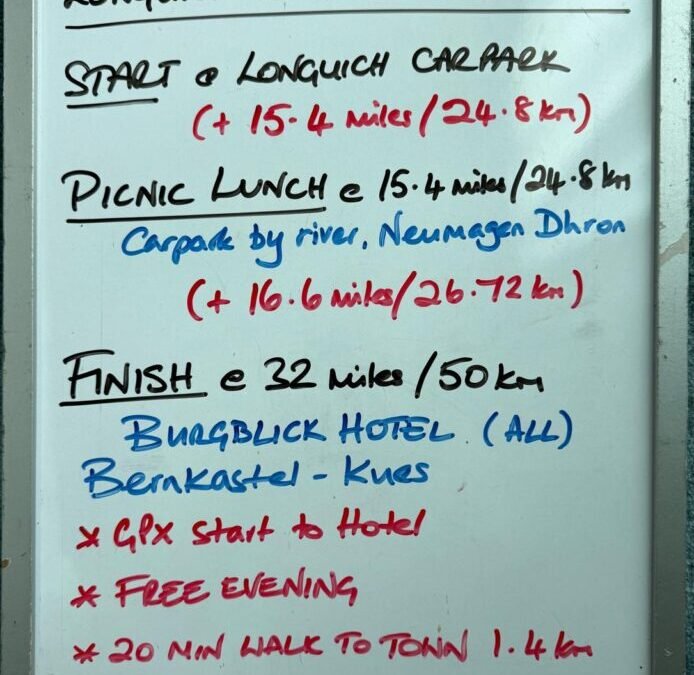 START @ LONGUICH CARPARK
(+ 15.4 miles/24.8 km)
PICNIC LUNCH @ 15.4 miles/24.8 km
Carpark by river, Neumagen Dhron
(+ 16.6 miles/26.72 km)
FINISH @ 32 miles/50 km
BURGBLICK HOTEL (ALL)
Bernkastel - Kues
* GPX Start to Hotel
* FREE EVENING
* 20 MIN WALK TO TOWN 1.4 km